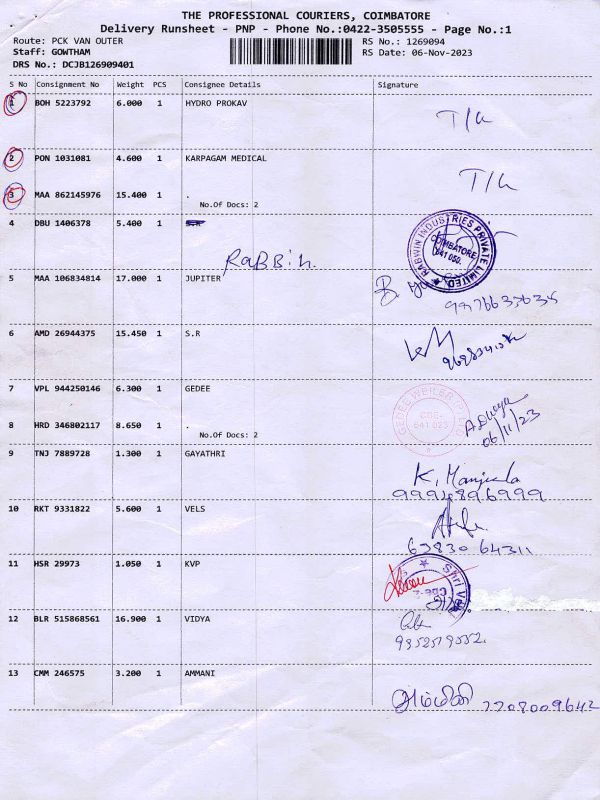 THE PROFESSIONAL COURIERS, COIMBATORE
Delivery Runsheet - PNP - Phone No.:0422-3505555 - Page No.:1
Route: PCK VAN OUTER RS No.: 1269094
Staff: GOWTHAM RS Date: 06-Nov-2023
DRS No.: DCJB126909401
S No Consignment No Weight PCS Consignee Details Signature
1 BOH 5223792 6.000 1 HYDRO PROKAV
2 PON 1031081 4.600 1 KARPAGAM MEDICAL
3 MAA 862145976 15.400 1 .
No.Of Docs: 2
4 DBU 1406378 5.400 1 S.R
RABWIN INDUSTRIES PRIVATE LIMITED
COIMBATORE
641 050.
5 MAA 106834814 17.000 1 JUPITER
6 AMD 26944375 15.450 1 S.R
7 VPL 944250146 6.300 1 GEDEE
GEDEE WEILER (P) LTD
CBE-
641 023
8 HRD 346802117 8.650 1 .
No.Of Docs: 2
06/11/23
9 TNJ 7889728 1.300 1 GAYATHRI
K. Manjula
9994896999
10 RKT 9331822 5.600 1 VELS
63830 64311
11 HSR 29973 1.050 1 KVP
Shri
12 BLR 515868561 16.900 1 VIDYA
13 CMM 246575 3.200 1 AMMANI
அம்மணி 7708009642